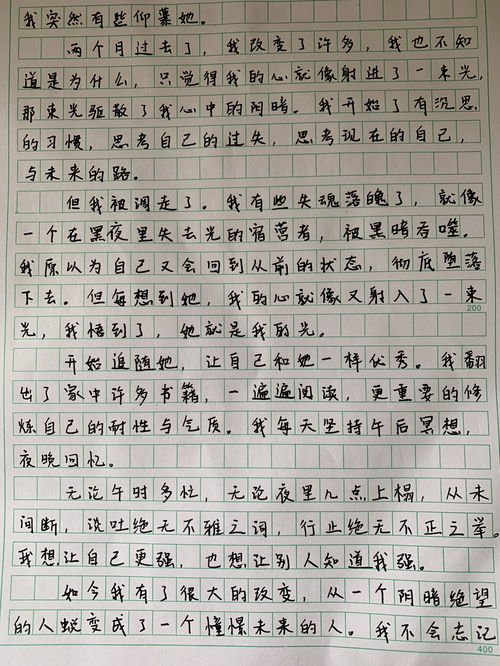 我突然有些仰慕她。
两个月过去了，我改变了许多，我也不知
道是为什么，只觉得我的心就像射进了一束光，
那束光驱散了我心中的阴暗。我开始了有沉思
的习惯，思考自己的过失，思考现在的自己，
与未来的路。
但我被调走了。我有些失魂落魄了，就像
一个在黑夜里失去光的宿营者，被黑暗吞噬。
我原以为自己又会回到从前的状态，彻底堕落
下去。但每想到她，我的心就像又射入了一束
光，我悟到了，她就是我的光。
200
开始追随她，让自己和她一样优秀。我翻
出了家中许多书籍，一遍遍阅读，更重要的修
炼自己的耐性与气质。我每天坚持午后冥想，
夜晚回忆。
无论午时多忙，无论夜里几点上榻，从未
间断，谈吐绝无不雅之词，行止绝无不正之举。
我想让自己更强，也想让别人知道我强。
如今我有了很大的改变，从一个阴暗绝望
的人蜕变成了一个憧憬未来的人。我不会忘记
400